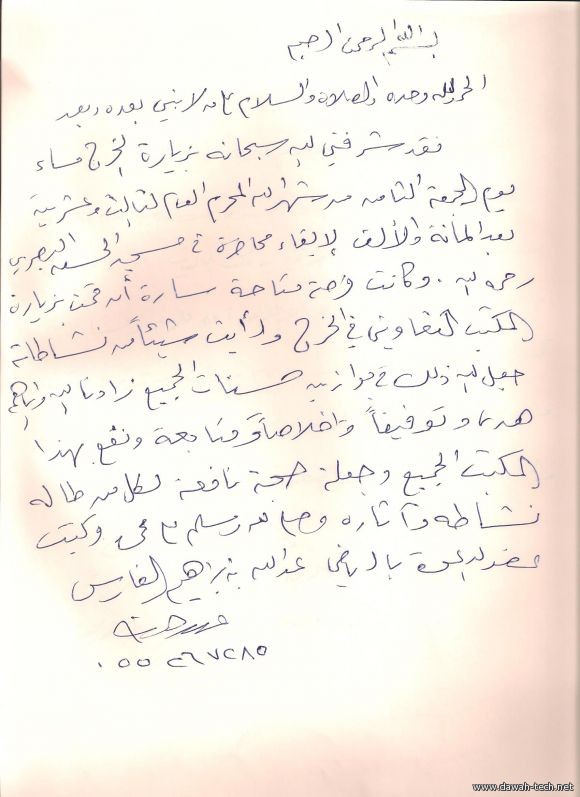 بسم الله الرحمن الرحيم
الحمد لله وحده والصلاة والسلام على من لا نبي بعده وبعد
فقد شرفني الله سبحانه بزيارة الخرج مساء
يوم الجمعة الثامن من شهر الله المحرم العام الثالث وعشرين
بعد المائة والألف لإلقاء محاضرة في مسجد الحسن البصري
رحمه الله . وكانت فرصة متاحة سارة أن قمت بزيارة
المكتب التعاوني في الخرج ورأيت شيئاً من نشاطاته
جعل الله ذلك في موازين حسنات الجميع زادنا الله وإياهم
هدى وتوفيقاً وإخلاصاً ومتابعة ونفع بهذا
المكتب الجميع وجعله حجة نافعة لكل من طاله
نشاطه وآثاره وصلى الله وسلم على محمد وكتبت
عضو الدعوة بالرياض عبدالله بن إبراهيم الفارس
٠٥٥٢٦٧٢٨٥
www.dawah-tech.net